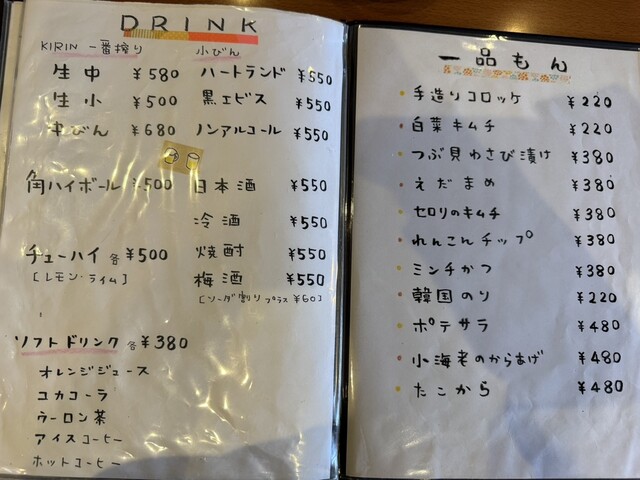 DRINK
KIRIN 一番搾り
生中 ¥580
生小 ¥500
中びん ¥680
角ハイボール ¥500
チューハイ 各¥500
[レモン・ライム]
小びん
ハートランド ¥550
黒エビス ¥550
ノンアルコール ¥550
日本酒 ¥550
冷酒 ¥550
焼酎 ¥550
梅酒 ¥550
[ソーダ割りプラス¥60]
ソフトドリンク 各¥380
オレンジジュース
コカコーラ
ウーロン茶
アイスコーヒー
ホットコーヒー
一品もん
手造りコロッケ ¥220
白菜キムチ ¥220
つぶ貝わさび漬け ¥380
えだまめ ¥380
セロリのキムチ ¥380
れんこんチップ ¥380
ミンチかつ ¥380
韓国のり ¥220
ポテサラ ¥480
小海老のからあげ ¥480
たこから ¥480